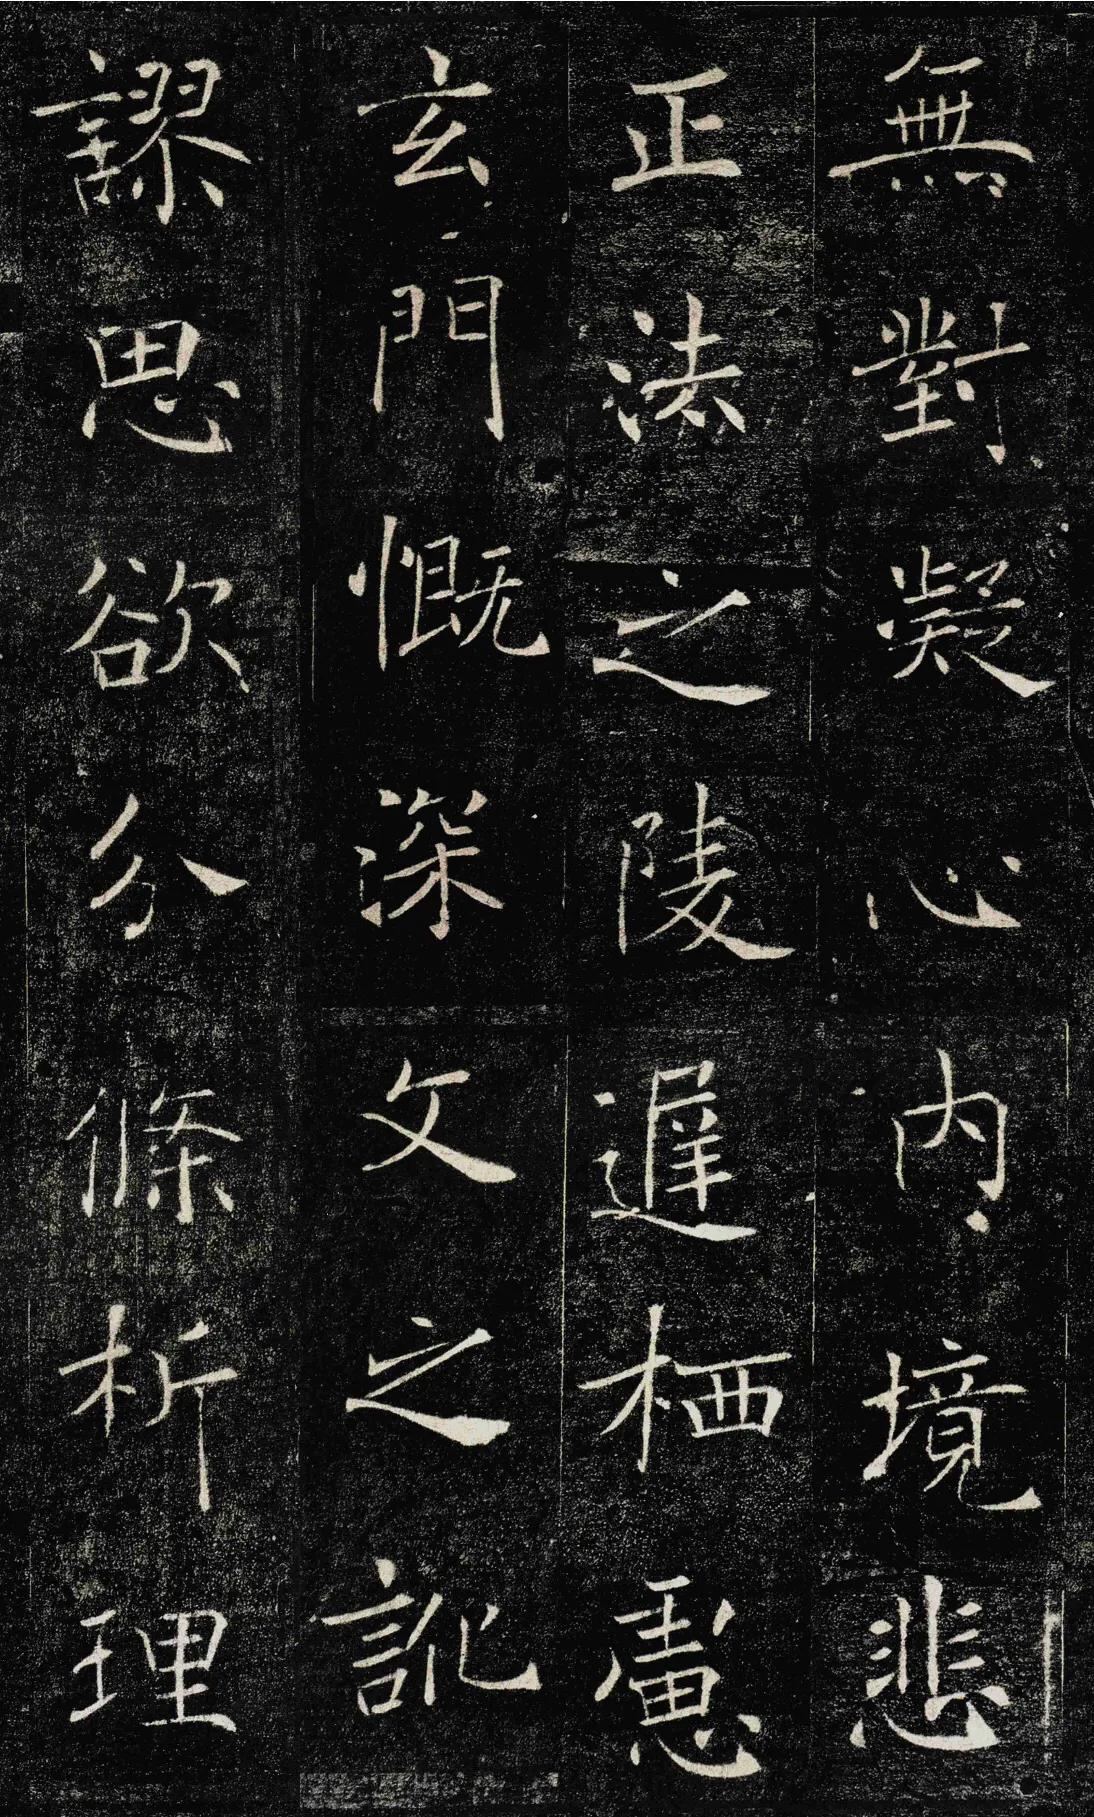 無對凝心内境悲
正法之陵遲栖慮
玄門慨深文之訛
謬思欲分條析理